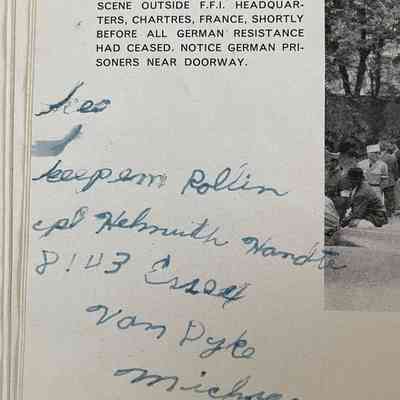 SCENE OUTSIDE F.F.I. HEADQUAR-
TERS, CHARTRES, FRANCE, SHORTLY
BEFORE ALL GERMAN RESISTANCE
HAD CEASED. NOTICE GERMAN PRI-
SONERS NEAR DOORWAY.
keepem Rollin
cpl Helmuth
Essex
Van Dyke